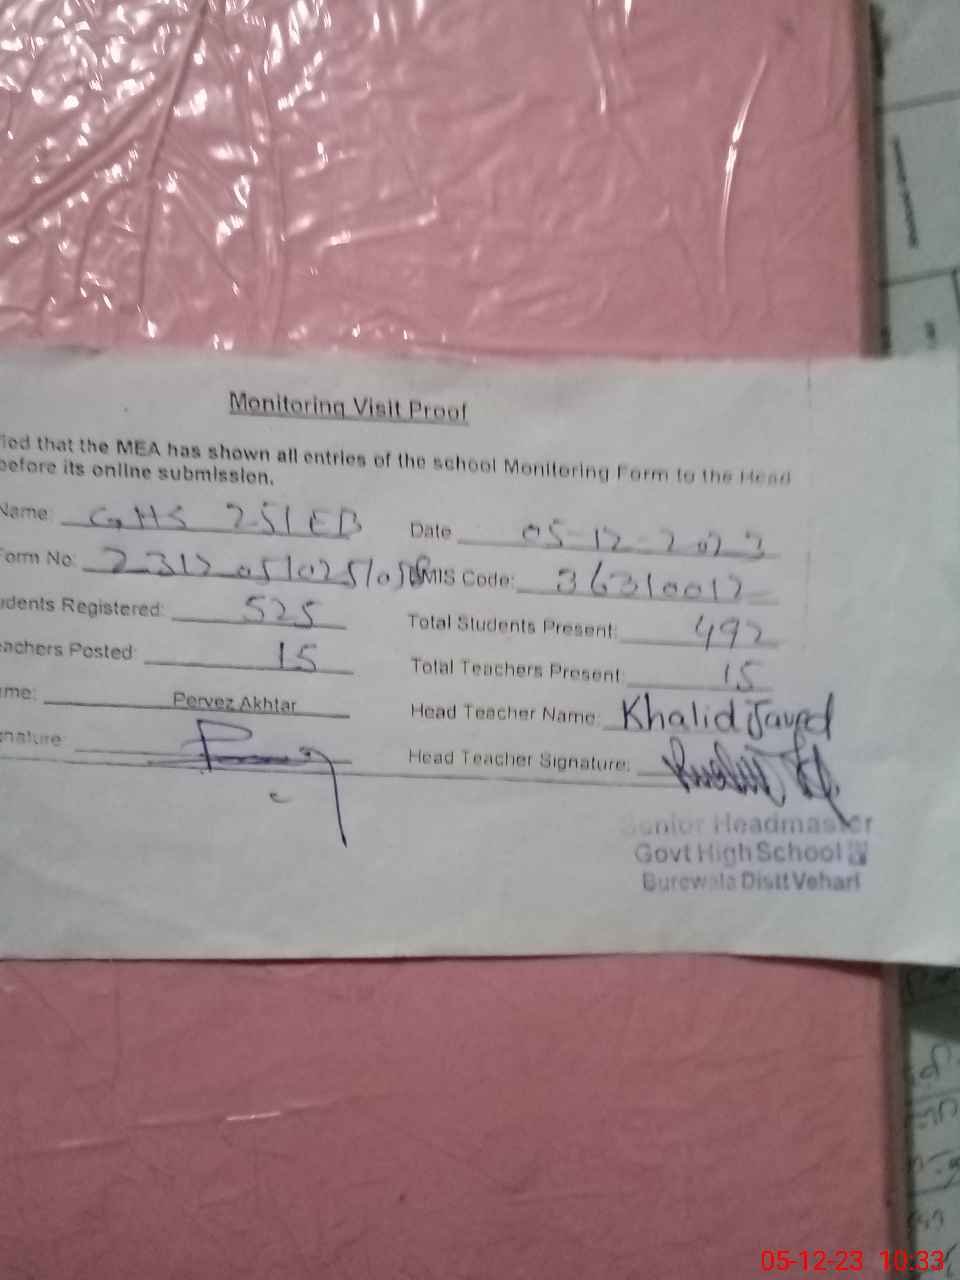 Monitoring Visit Proof
fied that the MEA has shown all entries of the school Monitoring Form to the Head
before its online submission.
Name: GHS 251 EB Date 05-12-2023
Form No: MIS Code: 36310012
udents Registered: 525 Total Students Present: 492
achers Posted: 15 Total Teachers Present: 15
me: Pervez Akhtar Head Teacher Name: Khalid Javed
nature: Head Teacher Signature:
Senior Headmaster
Govt High School
Burewala Distt Vehari
05-12-23 10:33